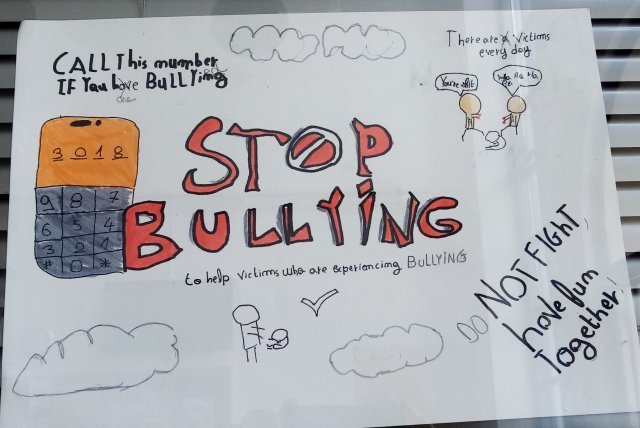 CALL This mumber
IF You are BULLYing
There are victims
every day
You're shit
Ha Ha Ha
3018
STOP
BULLYING
9 8 7
6 5 4
3 2 1
# 0 *
to help victims who are experiencing BULLYING
DO NOT FIGHT,
have fum
Together!